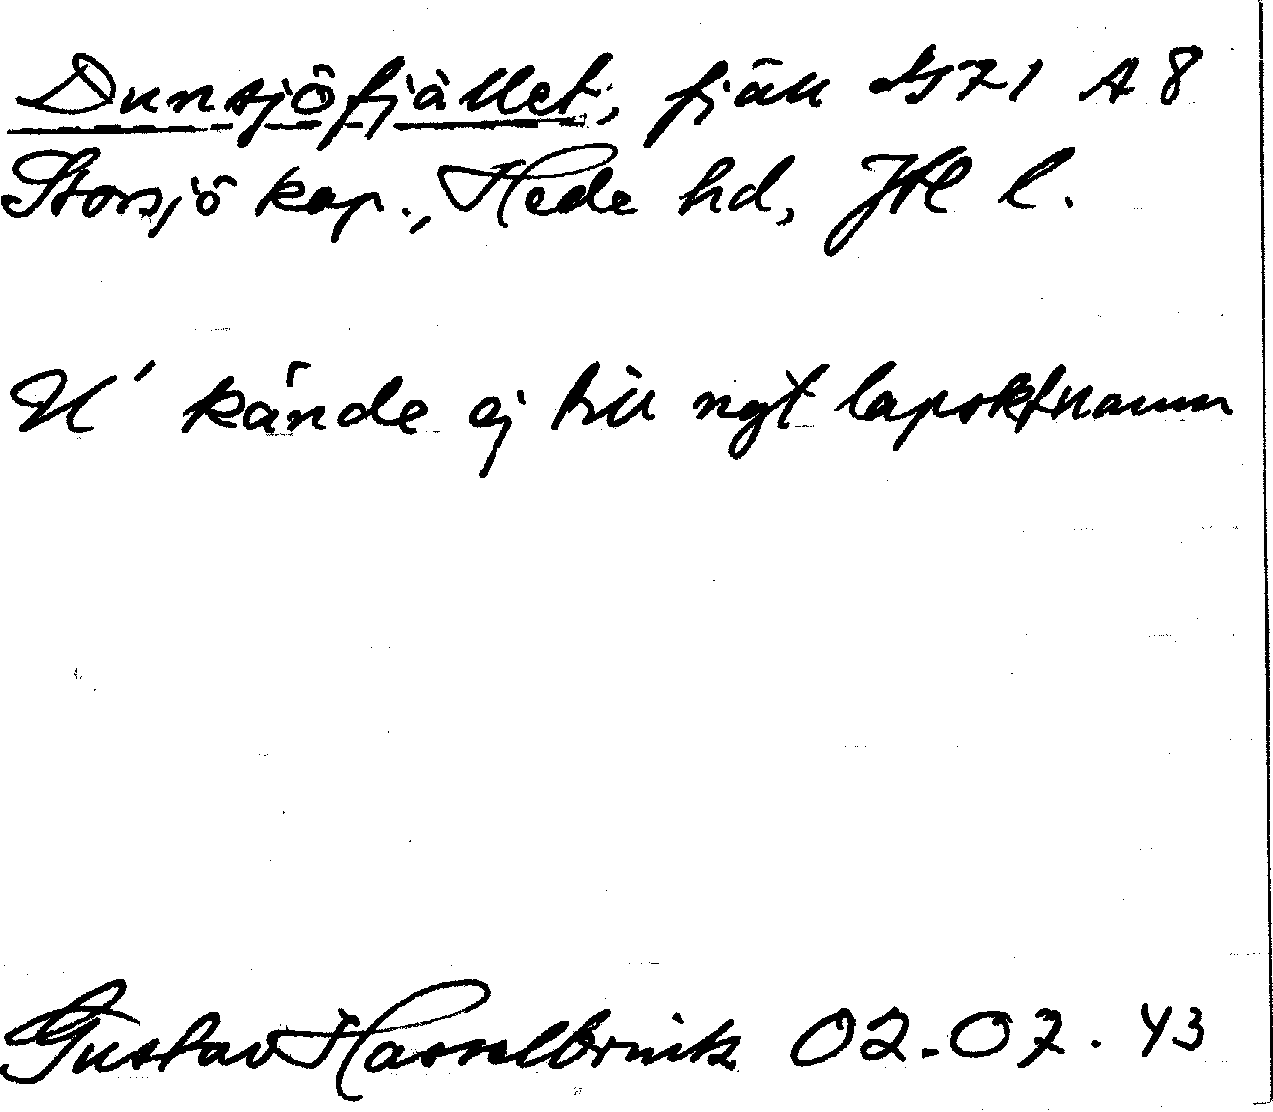 Dunsjöfjället, fjäll 571 A 8
Storsjö kap., Hede hd, Jtl l.
U' kände ej till ngt lapskt namn
Gustav Hasselbrink 02.07.43